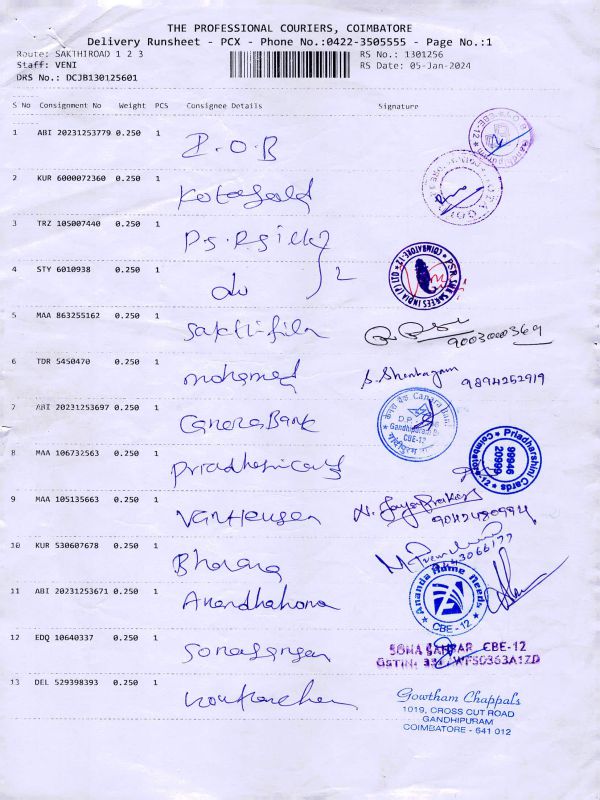 THE PROFESSIONAL COURIERS, COIMBATORE
Delivery Runsheet - PCX - Phone No.:0422-3505555 - Page No.:1
Route: SAKTHIROAD 1 2 3 RS No.: 1301256
Staff: VENI RS Date: 05-Jan-2024
DRS No.: DCJB130125601
S No Consignment No Weight PCS Consignee Details Signature
1 ABI 20231253779 0.250 1
I.O.B
2 KUR 6000072360 0.250 1
3 TRZ 105007440 0.250 1
4 STY 6010938 0.250 1
do 2
COIMBATORE-12
5 MAA 863255162 0.250 1
9003000369
6 TDR 5450470 0.250 1
mohamed S. Shenbagam 9894252919
7 ABI 20231253697 0.250 1
Canara Bank
केनरा बैंक Canara Bank
Gandhipuram Br
CBE-12
8 MAA 106732563 0.250 1
Priadharshini Cards
99946
20999
Coimbatore-12
9 MAA 105135663 0.250 1
VanHeusen
10 KUR 530607678 0.250 1
Bharani
11 ABI 20231253671 0.250 1
Ananda Home Needs
CBE - 12
12 EDQ 10640337 0.250 1
SONA CBE-12
GSTIN:
13 DEL 529398393 0.250 1
Gowtham Chappals
1019, CROSS CUT ROAD
GANDHIPURAM
COIMBATORE - 641 012